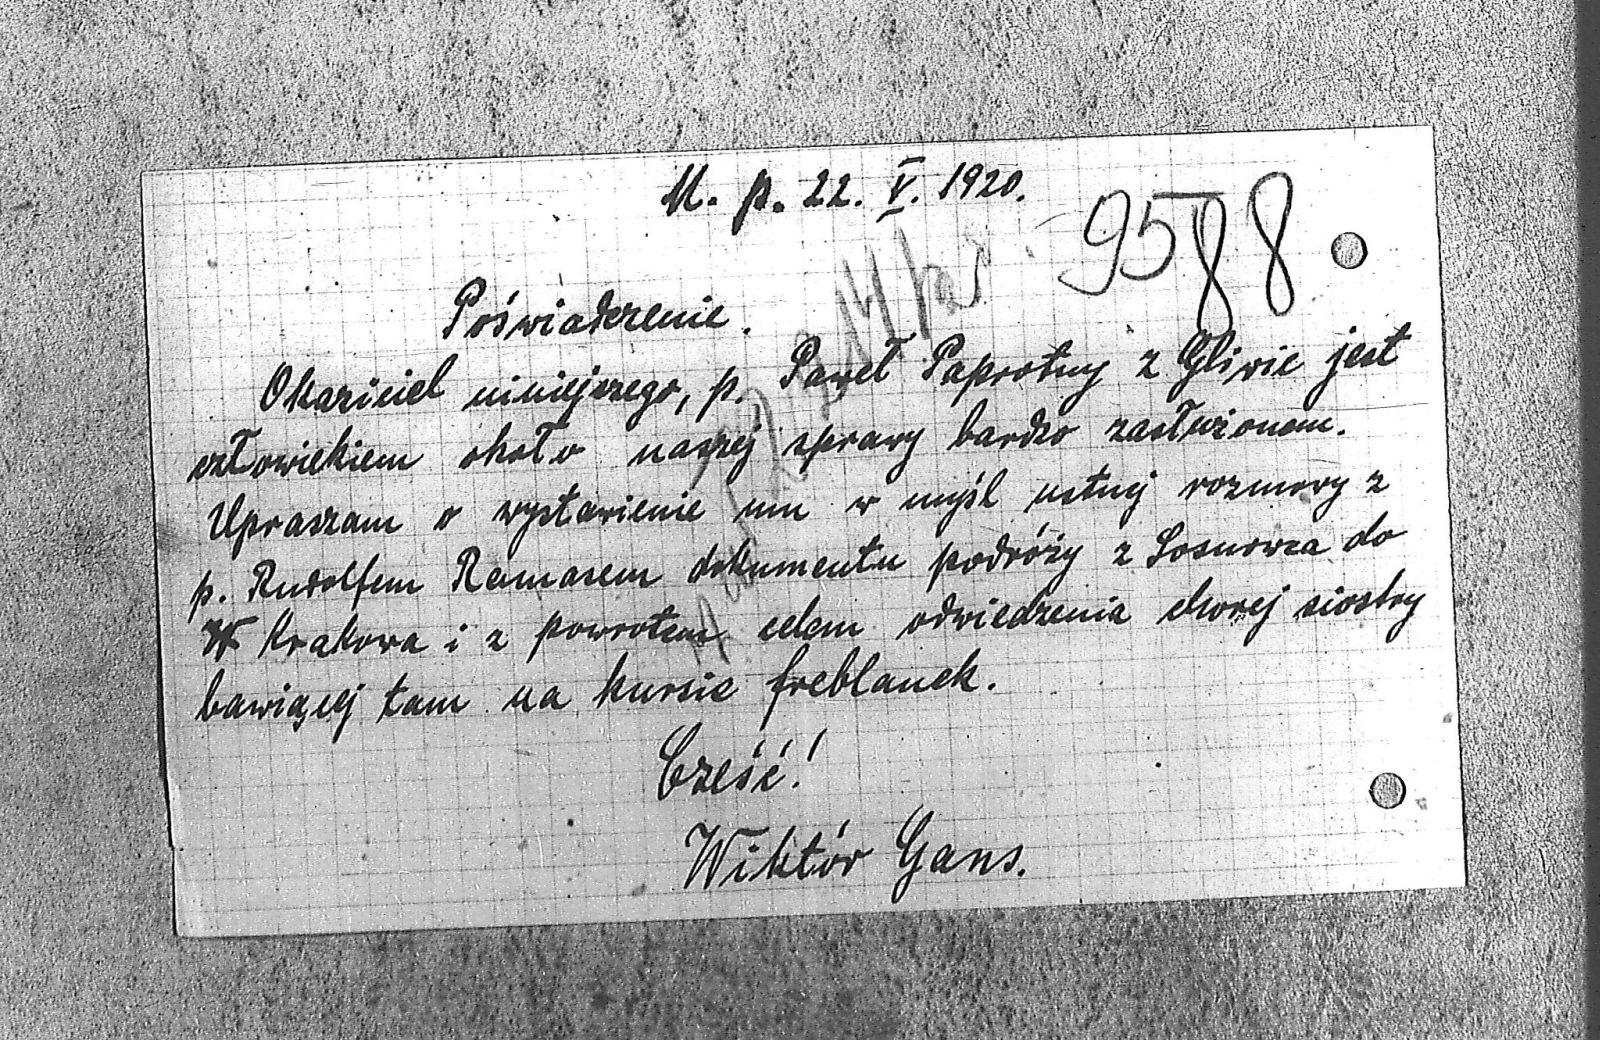 M. p. 22. V. 1920.
9588
Poświadczenie.
Okaziciel niniejszego, p. Paweł Paprotny z Gliwic jest
człowiekiem około naszej sprawy bardzo zasłużonem.
Upraszam o wystawienie mu w myśl ustnej rozmowy z
p. Rudolfem Ramasem dokumentu podróży z Sosnowca do
Krakowa i z powrotem celem odwiedzenia chorej siostry
bawiącej tam na kursie freblanek.
Cześć!
Wiktór Gans.